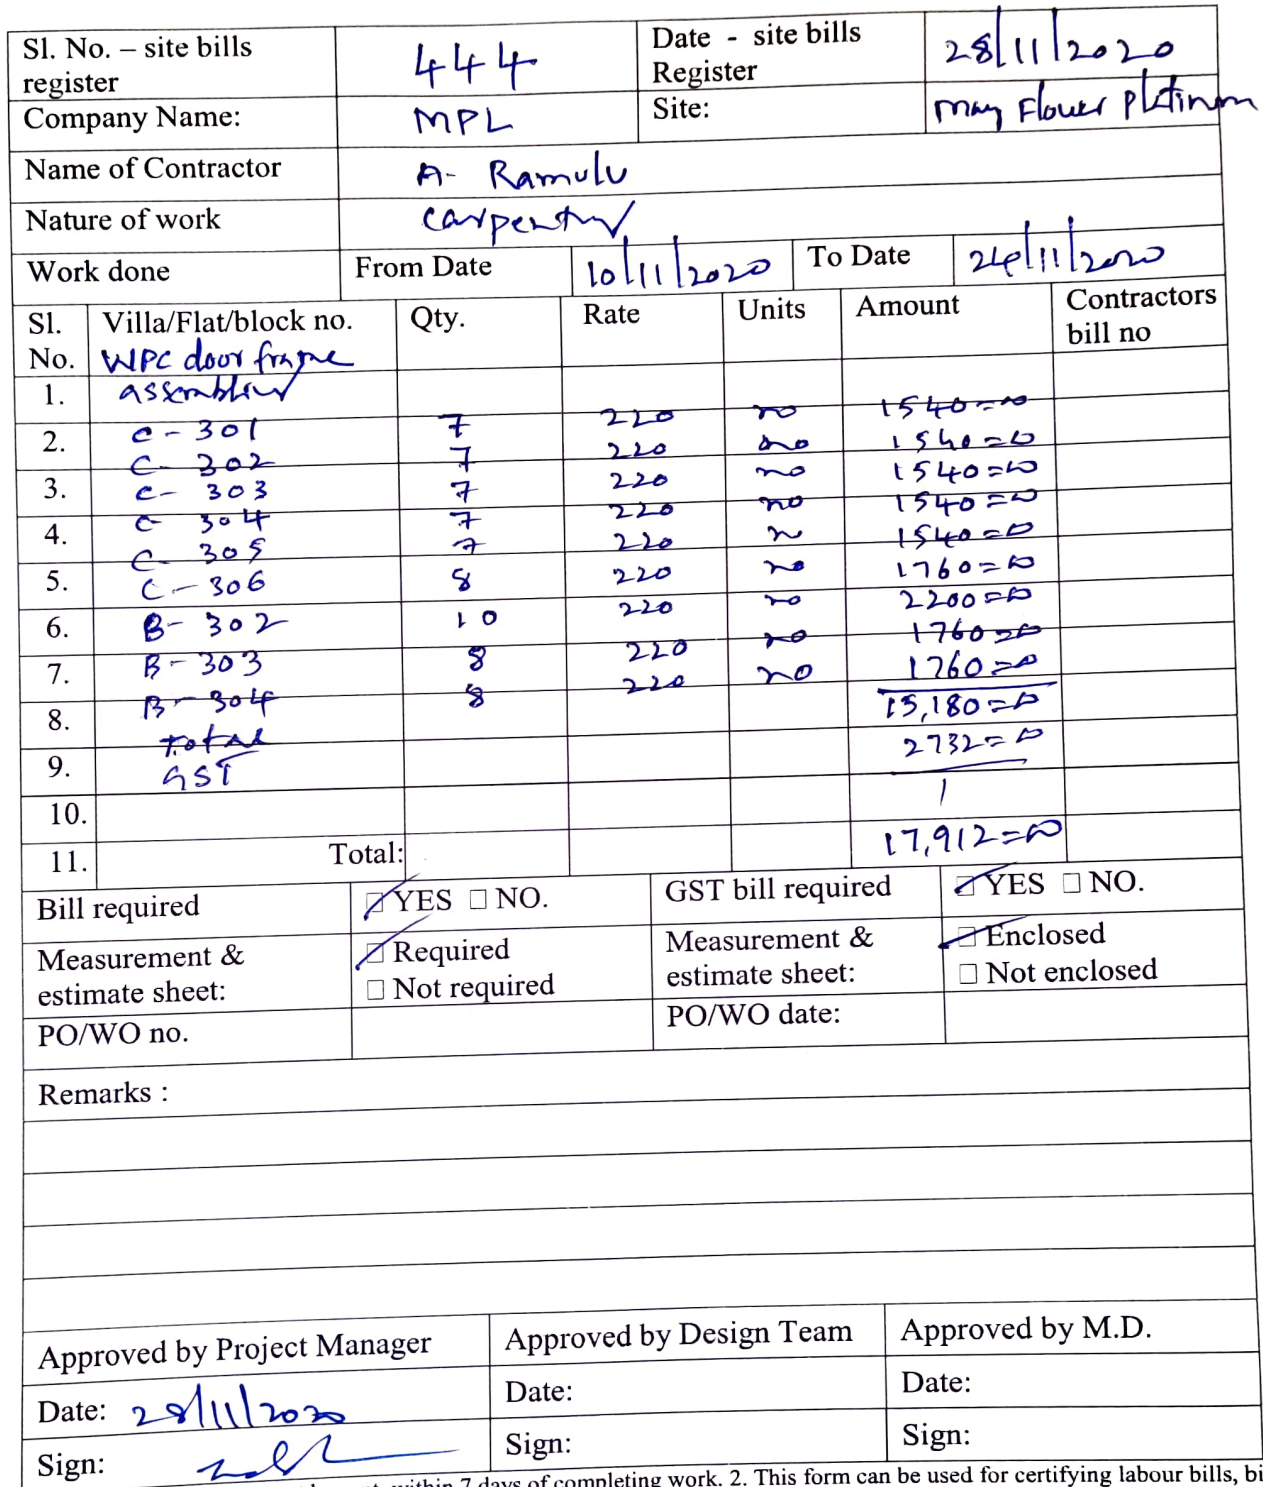 Sl. No. – site bills register 444 Date - site bills Register 28/11/2020
Company Name: MPL Site: May Flower Platinum
Name of Contractor A- Ramulu
Nature of work Carpentry
Work done From Date 10/11/2020 To Date 24/11/2020
Sl. No. Villa/Flat/block no. Qty. Rate Units Amount Contractors bill no
WPC door frame
1. assembling
C-301 7 220 no 1540=00
2. C-302 7 220 no 1540=00
3. C-303 7 220 no 1540=00
C-304 7 220 no 1540=00
4. C-305 7 220 no 1540=00
5. C-306 8 220 no 1760=00
6. B-302 10 220 no 2200=00
7. B-303 8 220 no 1760=00
B-304 8 220 no 1760=00
8. Total 15,180=00
9. GST 2732=00
10.
11. Total: 17,912=00
Bill required YES NO. GST bill required YES NO.
Measurement & estimate sheet: Required Not required Measurement & estimate sheet: Enclosed Not enclosed
PO/WO no. PO/WO date:
Remarks :
Approved by Project Manager Approved by Design Team Approved by M.D.
Date: 28/11/2020 Date: Date:
Sign: Sign: Sign:
within 7 days of completing work. 2. This form can be used for certifying labour bills, bi